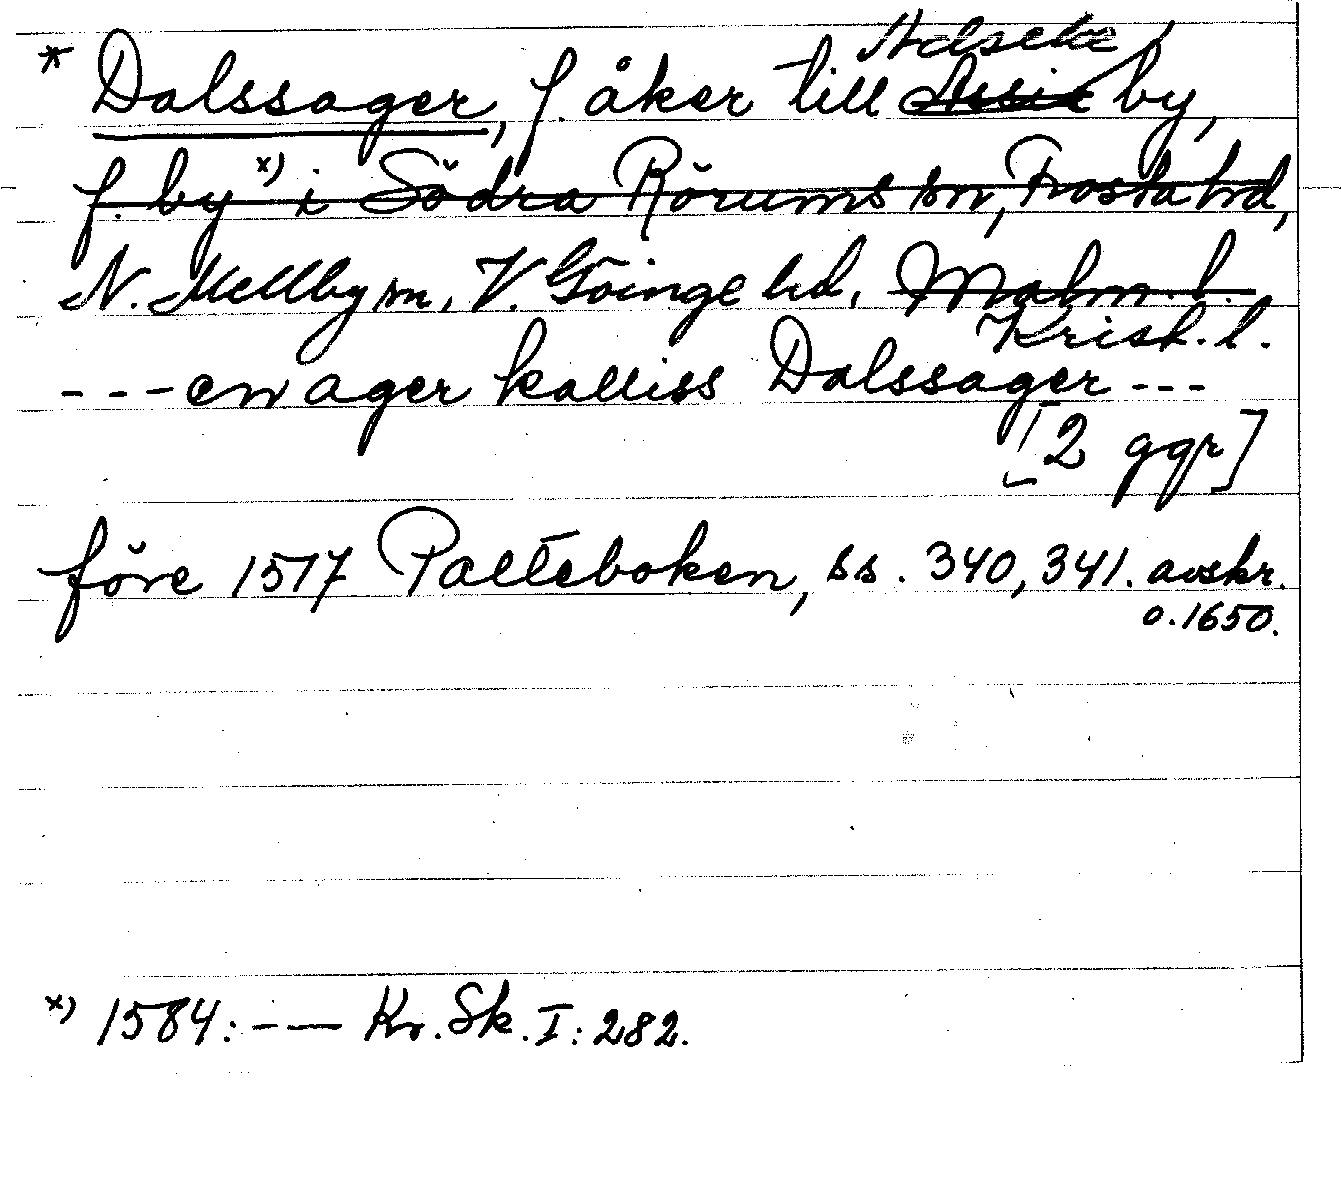 * Dalssager, f. åker till by,
f. by x) i Södra Rörums sn, Frosta hd,
N. Mellby sn, V. Göinge hd, Malm. l.
Krist. l.
---en ager kalliss Dalssager---
[2 ggr]
före 1517 Palteboken, ss. 340, 341. avskr.
o. 1650.
x) 1584: --- Kr. Sk. I: 282.